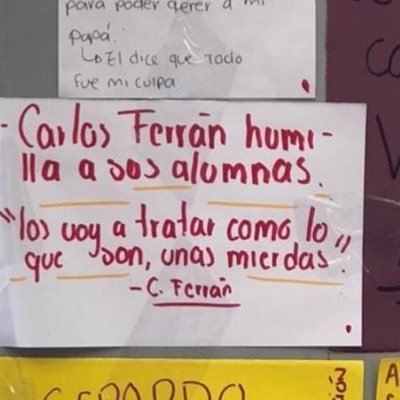 para poder qerer a mi
papá.
↳ El dice que todo
fue mi culpa.
- Carlos Ferrán humi-
lla a sus alumnas.
"los voy a tratar como lo
que son, unas mierdas".
- C. Ferrán
GERARDO